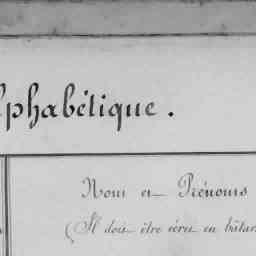 lphabétique.
Nom et Prénoms
(Il doit être écrit en bâtar